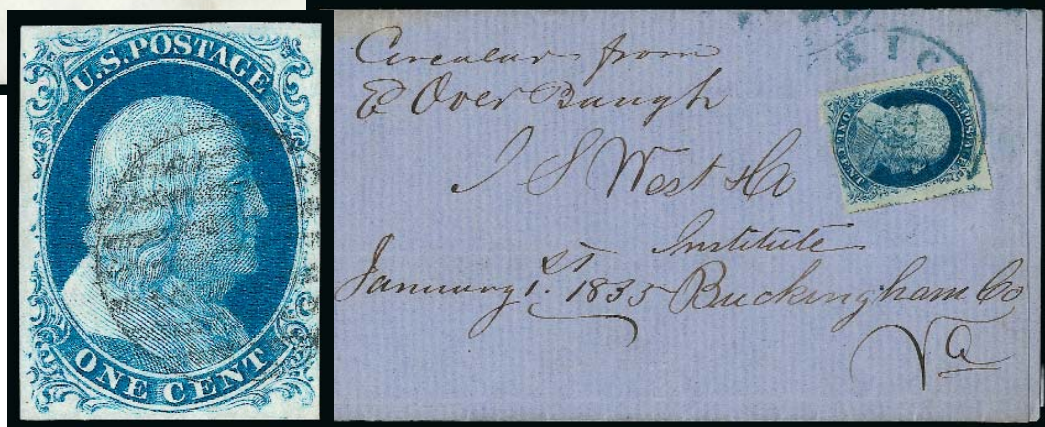 U.S. POSTAGE
ONE CENT
Circular from
E Over Baugh
J S West
Institute
January 1.st 1855 Buckingham Co
Va
U.S. POSTAGE
ONE CENT